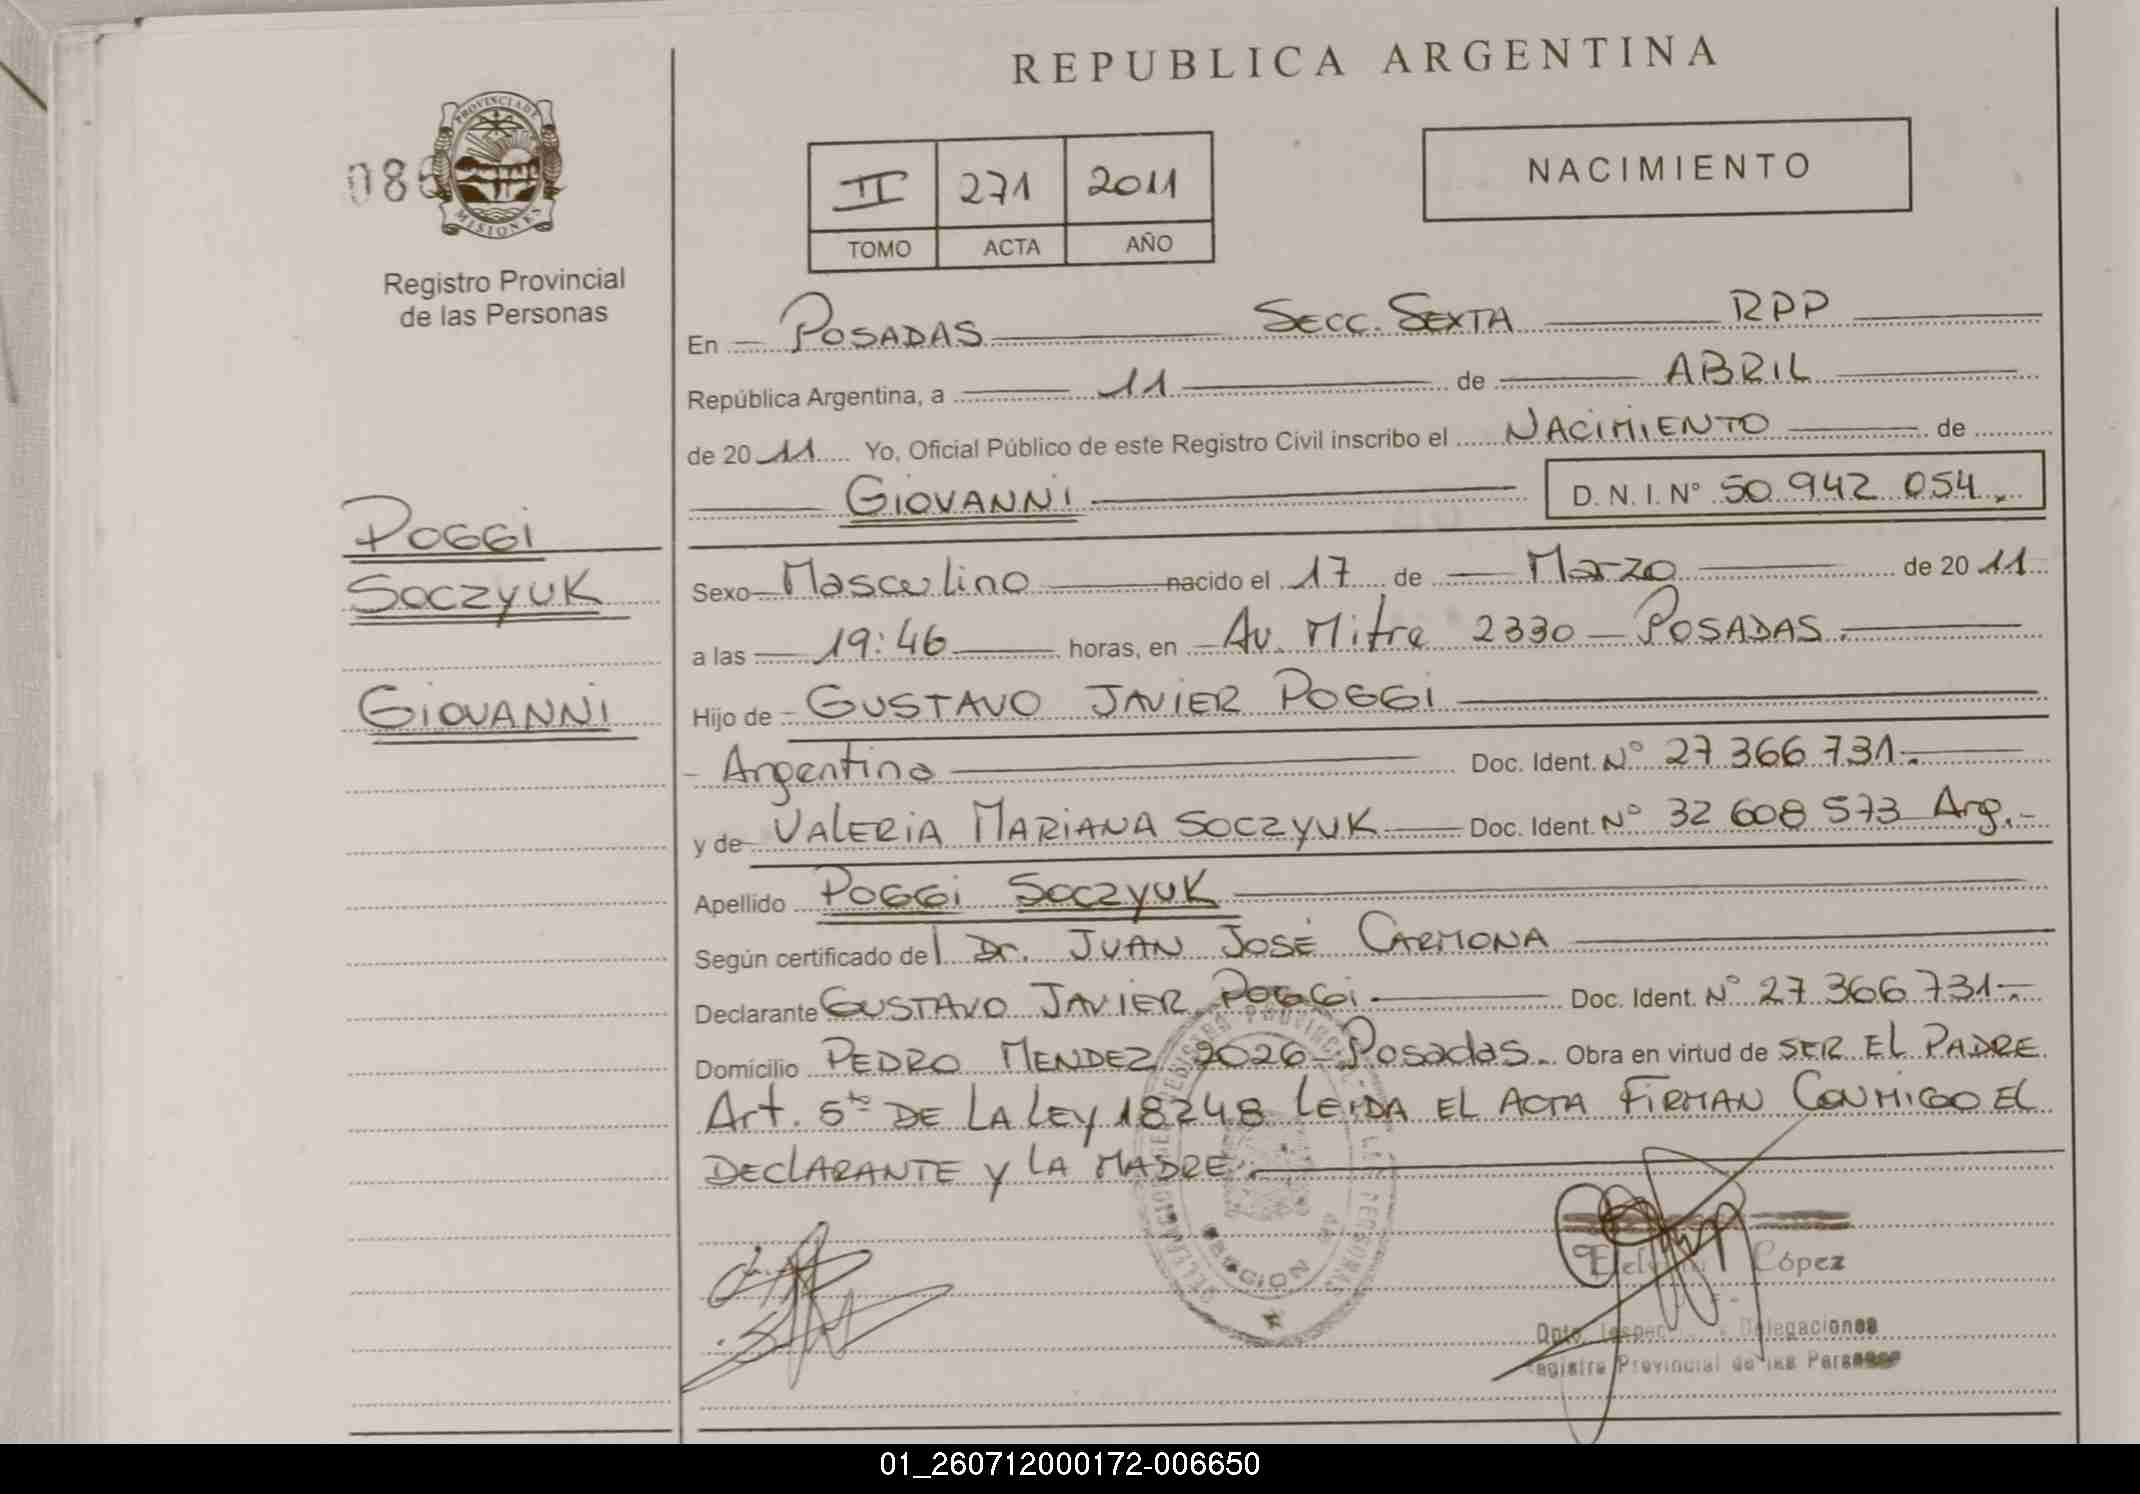 REPUBLICA ARGENTINA
PROVINCIA DE
MISIONES
Registro Provincial
de las Personas
II 271 2011
TOMO ACTA AÑO
NACIMIENTO
En POSADAS SECC. SEXTA RPP
República Argentina, a 11 de ABRIL
de 2011 Yo, Oficial Público de este Registro Civil inscribo el NACIMIENTO de
GIOVANNI D. N. I. N° 50 942 054.
POGGI
SOCZYUK
GIOVANNI
Sexo Masculino nacido el 17 de Marzo de 2011
a las 19:46 horas, en Av. Mitre 2330 - POSADAS.
Hijo de GUSTAVO JAVIER POGGI
Argentino Doc. Ident. N° 27 366 731.
y de VALERIA MARIANA SOCZYUK Doc. Ident. N° 32 608 573 Arg.
Apellido POGGI SOCZYUK
Según certificado del Dr. JUAN JOSÉ CARMONA
Declarante GUSTAVO JAVIER POGGI Doc. Ident. N° 27 366 731
Domicilio PEDRO MENDEZ 2026 - Posadas. Obra en virtud de SER EL PADRE
Art. 5to DE LA LEY 18248 LEIDA EL ACTA FIRMAN CONMIGO EL
DECLARANTE y LA MADRE.
López
Delegaciones
Provincial de las Personas
01_260712000172-006650